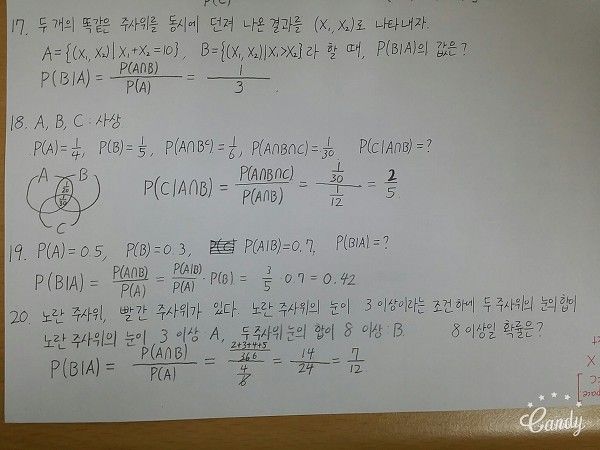 P(C)
17. 두 개의 똑같은 주사위를 동시에 던져 나온 결과를 (X₁, X₂)로 나타내자.
A={(X₁, X₂)|X₁+X₂=10}, B={(X₁, X₂)|X₁>X₂}라 할 때, P(B|A)의 값은?
P(B|A) = P(A∩B)/P(A) = 1/3.
18. A, B, C : 사상
P(A)=1/4, P(B)=1/5, P(A∩Bᶜ)=1/6, P(A∩B∩C)=1/30. P(C|A∩B)=?
A B
C
P(C|A∩B) = P(A∩B∩C)/P(A∩B) = (1/30)/(1/12) = 2/5
19. P(A)=0.5, P(B)=0.3, P(A|B)=0.7, P(B|A)=?
P(B|A) = P(A∩B)/P(A) = P(A|B)/P(A) · P(B) = 3/5 · 0.7 = 0.42
20. 노란 주사위, 빨간 주사위가 있다. 노란 주사위의 눈이 3 이상이라는 조건하에 두 주사위의 눈의 합이
8 이상일 확률은?
노란 주사위의 눈이 3 이상 : A, 두 주사위 눈의 합이 8 이상 : B.
P(B|A) = P(A∩B)/P(A) = ((2+3+4+5)/36)/(4/6) = 14/24 = 7/12
X
Candy